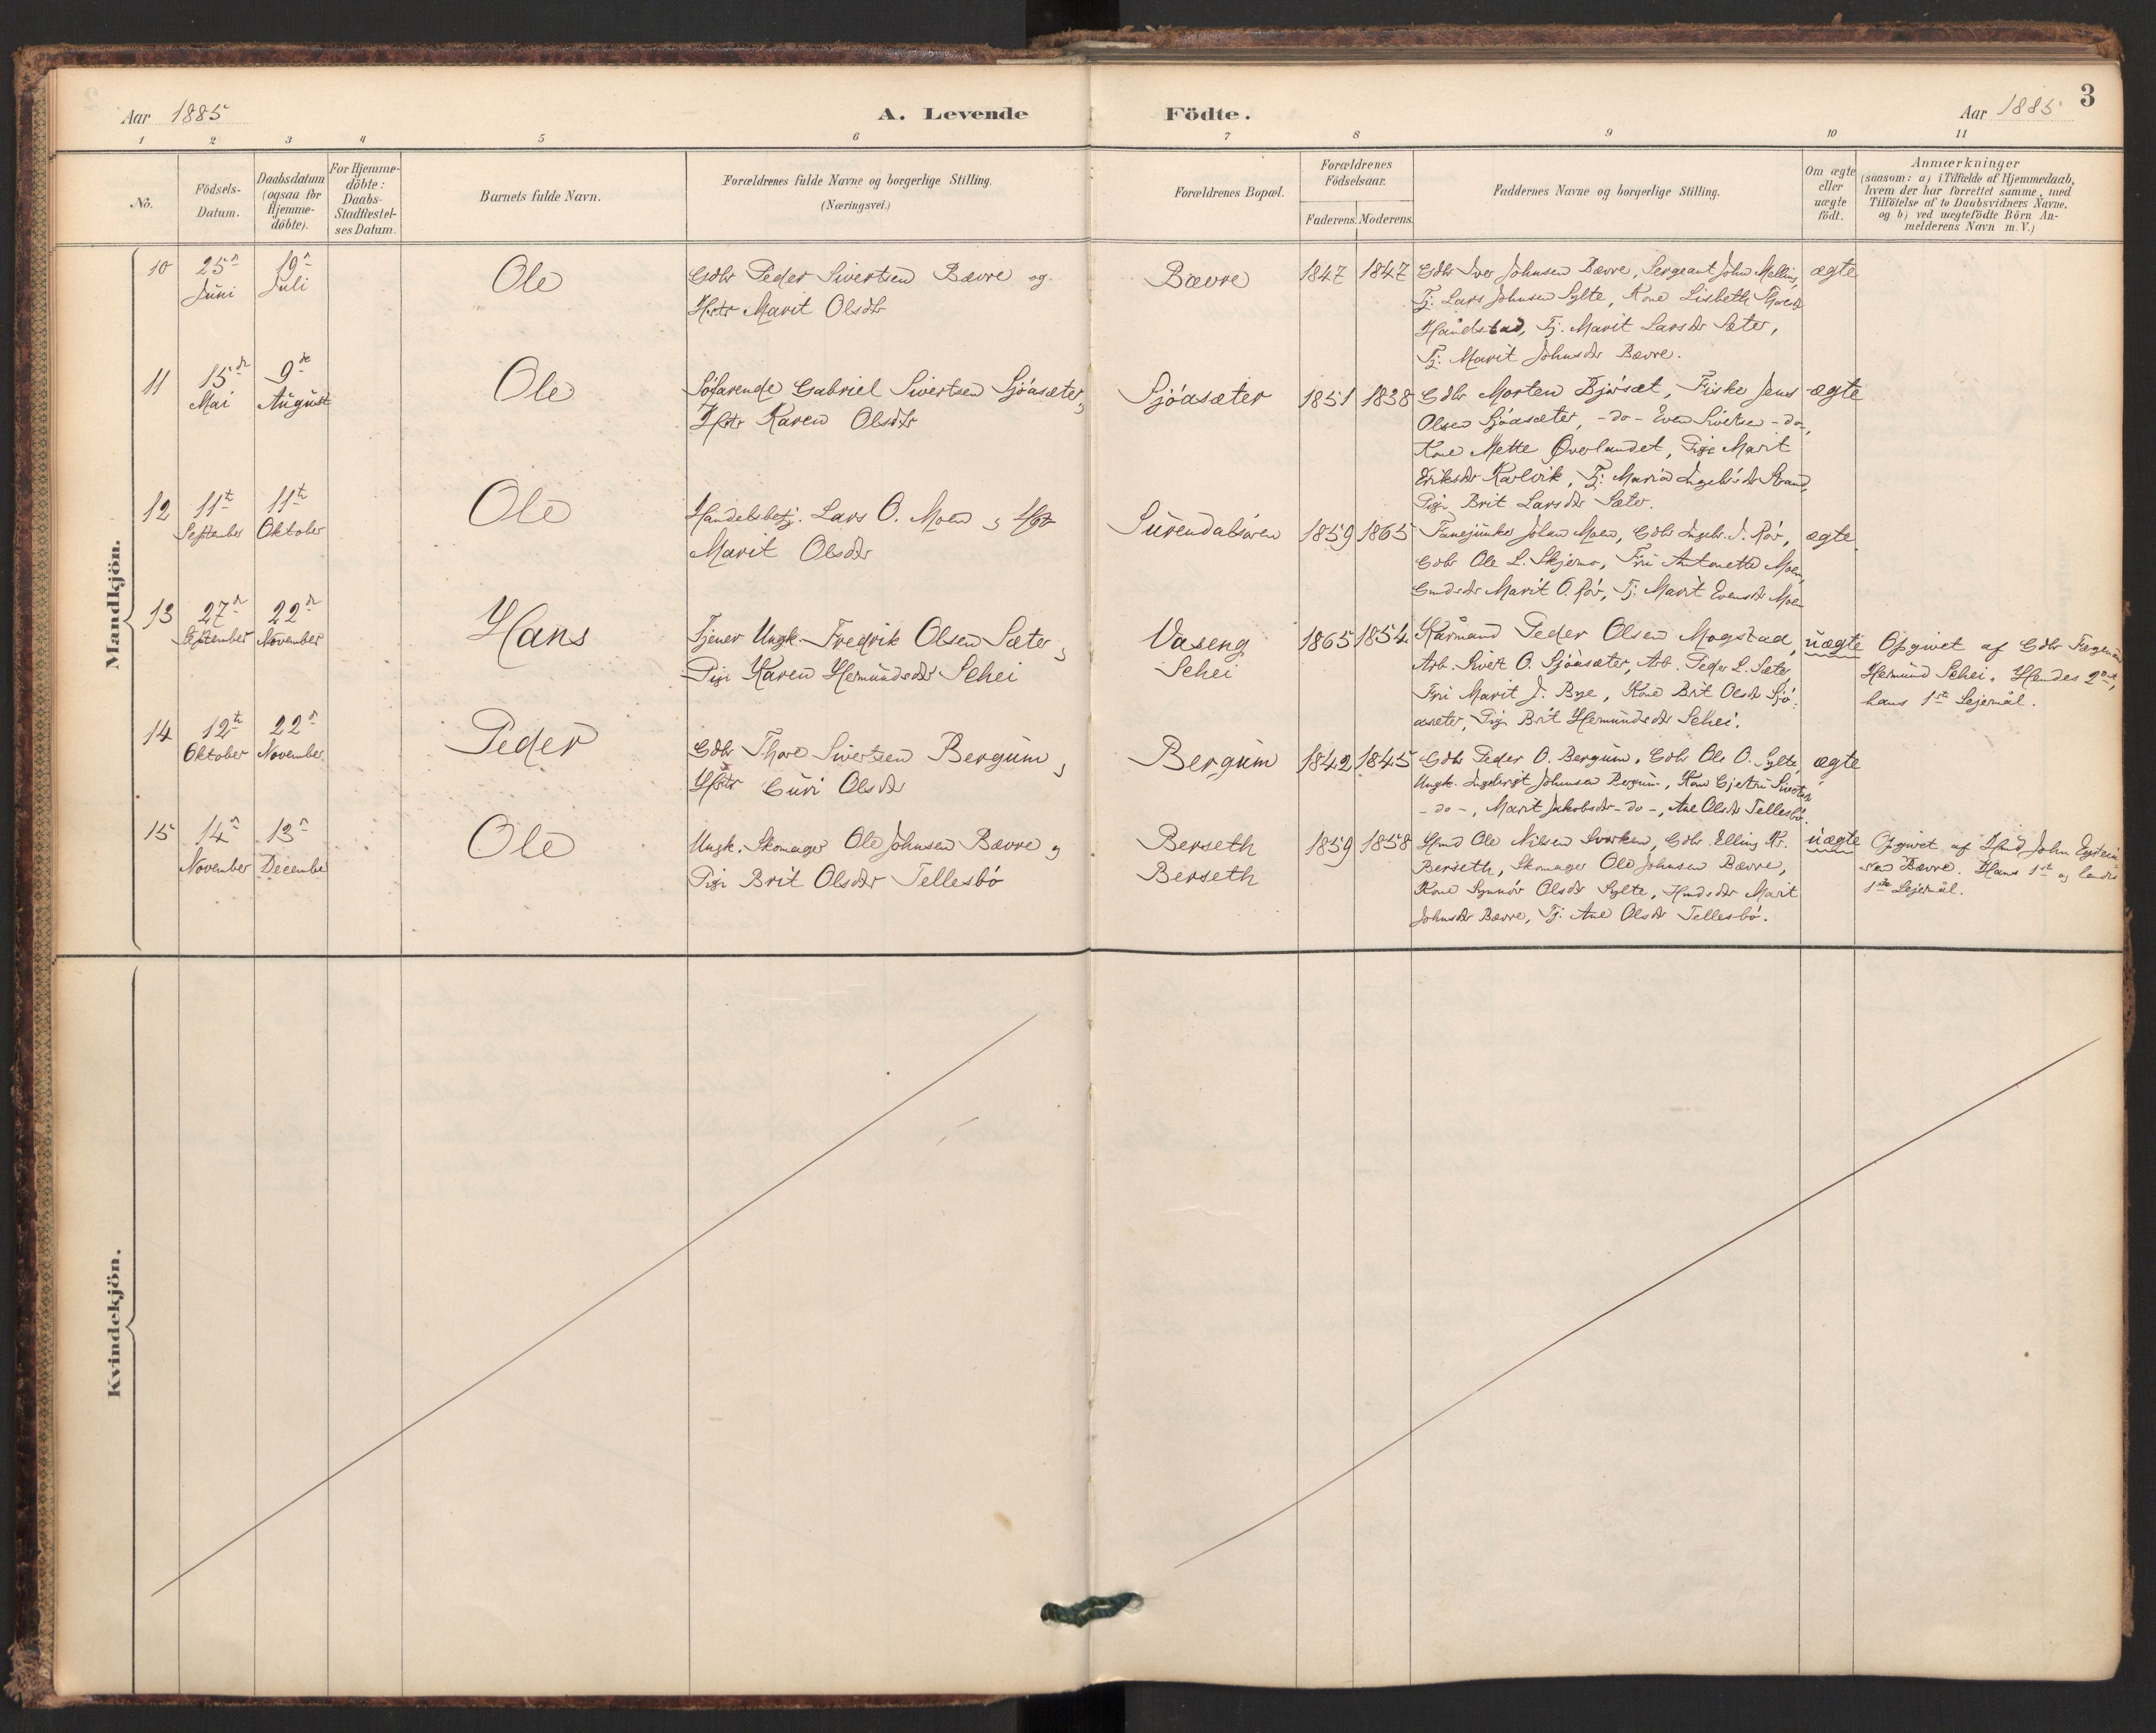 Aar 1885
A. Levende Födte.
Aar 1885
3
1 2 3 4 5 6 7 8 9 10 11
No.
Födsels-
Datum.
Daabsdatum
(ogsaa for
Hjemme-
döbte).
For Hjemme-
döbte:
Daabs-
Stadfæstel-
ses Datum.
Barnets fulde Navn.
Forældrenes fulde Navne og borgerlige Stilling.
(Næringsvei.)
Forældrenes Bopæl.
Forældrenes
Födselsaar.
Faderens. Moderens.
Faddernes Navne og borgerlige Stilling.
Om ægte
eller
uægte
födt.
Anmærkninger
(saasom: a) i Tilfælde af Hjemmedaab,
hvem der har forrettet samme, med
Tilföielse af to Daabsvidners Navne,
og b) ved uægtefödte Börn An-
melderens Navn m. V.)
Mandkjön.
10
25n
Juni
19n
Juli
Ole
Gdbr Peder Sivertsen Bævre og
Hstr Marit Olsdtr
Bævre
1847 1847
Gdbr Iver Johnsen Bævre, Sergeant John Melling,
Tj. Lars Johnsen Sylte, Kone Lisbeth
Haandstad, Tj. Marit Larsdtr Sæter,
Tj. Marit Johnsdtr Bævre.
ægte
11
15de
Mai
9de
August
Ole
Söfarende Gabriel Sivertsen Sjöasæter,
Hstr Karen Olsdtr
Sjöasæter
1851 1838
Gdbr Morten Björsæt, Fisker Jens
Olsen Sjöasæter, -do- Even Sivertsen -do-,
Kone Mette Överlandet, Pige Marit
Eriksdtr Karlvik, Tj. Maria Strand,
Pige Brit Larsdtr Sæter.
ægte
12
11te
September
11te
Oktober
Ole
Handelsbetj. Lars O. Moen og Hst
Marit Olsdtr
Surendalsören
1859 1865
Fanejunker Johan Moen, Gdbr Ingebr. J. Rör,
Gdbr Ole L. Skjermo, Fru Antonette Moen,
Gmdsdtr Marit O. Rör, Tj. Marit Evensdtr Moen
ægte
13
27de
September
22de
November
Hans
Tjener Ungk. Fredrik Olsen Sæter og
Pige Karen Hermundsdtr Schei
Vaseng
Schei
1865 1854
Kårmand Peder Olsen Mogstad,
Arb. Sivert O. Sjöasæter, Arb. Peder L. Sæter,
Fru Marit J. Bye, Kone Brit Olsdtr Sjö-
asæter, Pige Brit Hermundsdtr Schei.
uægte
Opgivet af Gdbr
Hermund Schei. Hendes 2det,
hans 1ste Lejermål.
14
12te
Oktober
22n
November
Peder
Gdbr Thore Sivertsen Bergum og
Hstr Guri Olsdtr
Bergum
1842 1845
Gdbr Peder O. Bergum, Gdbr Ole O. Sylte,
Ungk. Ingebrigt Johnsen Bergum, Kone Gjertru Sivertsdtr
-do-, Marit Jakobsdtr -do-, Ane Olsdtr Tellesbö.
ægte
15
14n
November
13n
December
Ole
Ungk. Skomager Ole Johnsen Bævre og
Pige Brit Olsdtr Tellesbö
Berseth
Berseth
1859 1858
Hmd Ole Nilsen Svorken, Gdbr Elling Kr.
Berseth, Skomager Ole Johnsen Bævre,
Kone Synnör Olsdtr Sylte, Hmdsdtr Marit
Johnsdtr Bævre, Tj. Ane Olsdtr Tellesbö.
uægte
Opgivet af Hmd John Eystein-
sen Bævre. Hans 1ste og hendes
1ste Lejermål.
Kvindekjön.